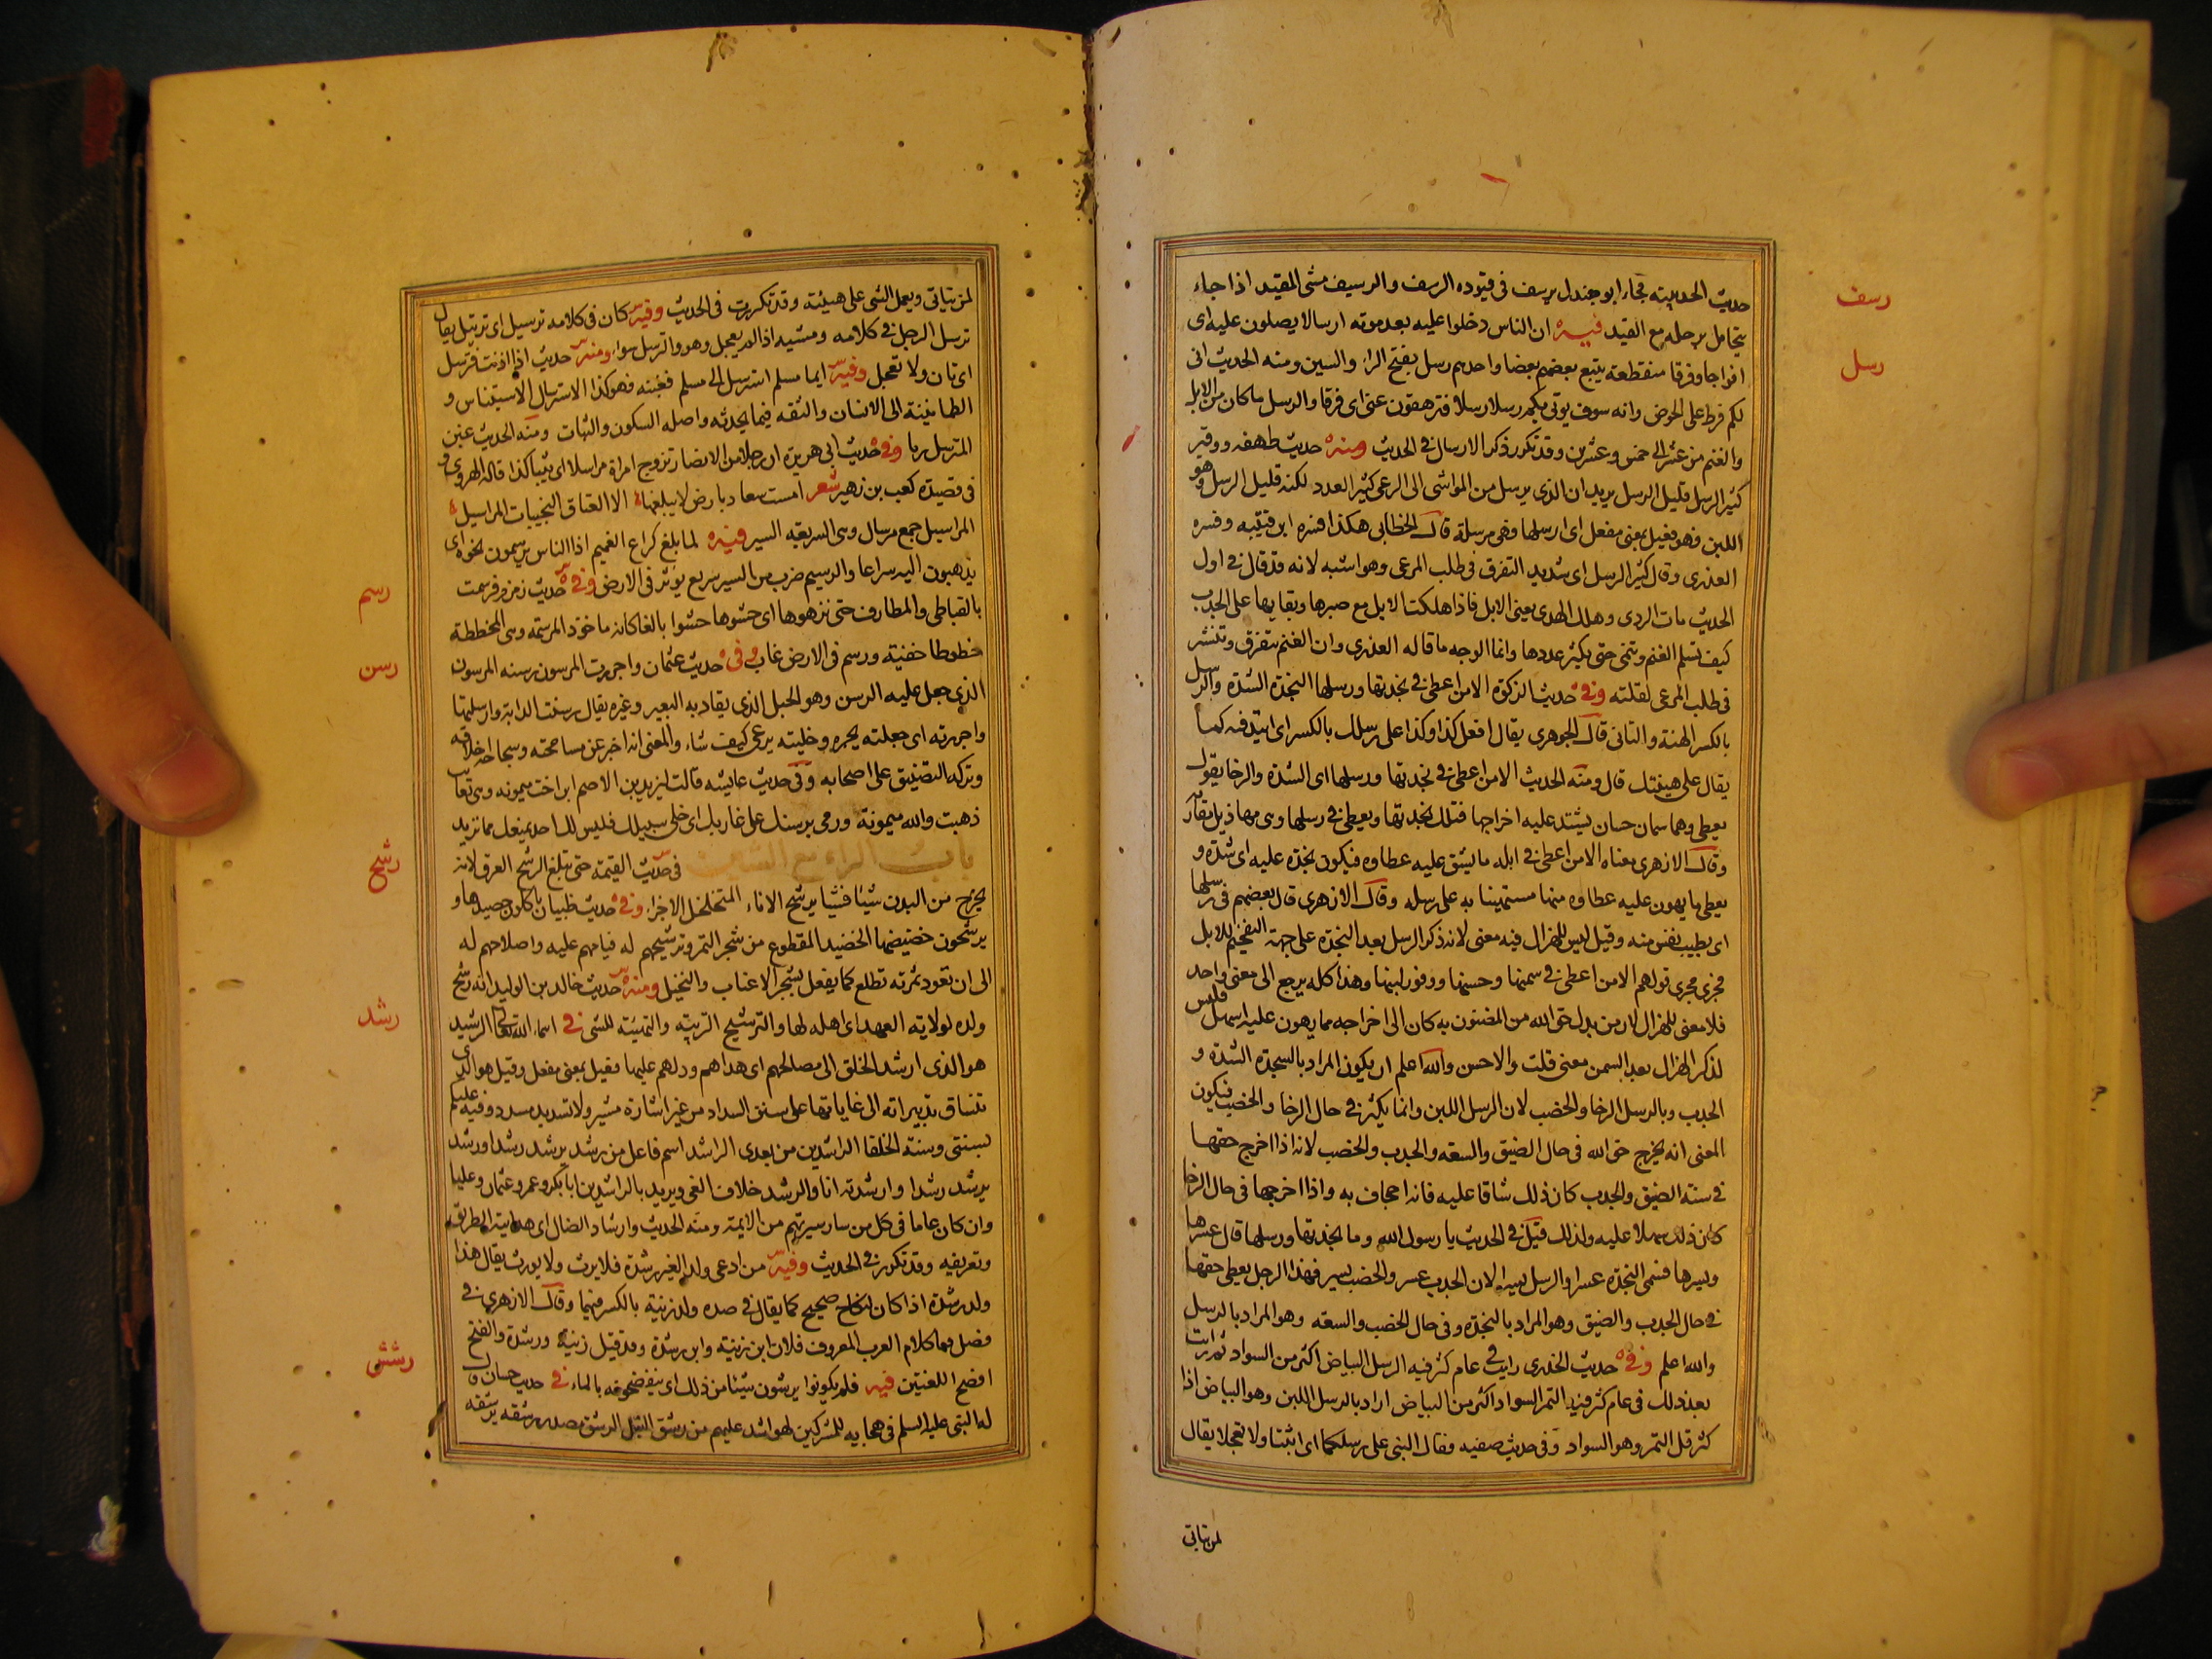 حديث الحديبية فجاء ابو جندل يرسف في قيوده الرسف والرسيف مشى المقيد اذا جاء
رسف
يتحامل برجله مع القيد فيه ان الناس دخلوا عليه بعد موته ارسالا يصلون عليه اى
رسل
افواجا وفرقا متقطعة يتبع بعضهم بعضا واحدهم رسل بفتح الراء والسين ومنه الحديث انى
لكم فرط على الحوض وانه سوف يوتى بكم رسلا رسلا فترهقون عنى اى فرقا والرسل ماكان من الابل
والغنم من عشر الى خمس وعشرين وقد تكرر ذكر الارسال فى الحديث ومنه حديث طهفه ووقير
كثير الرسل قليل الرسل يريد ان الذى يرسل من المواشى الى الرعى كثير العدد لكنه قليل الرسل وهو
اللبن وهو فعيل بمعنى مفعل اى ارسلها وهى مرسلة قال الخطابى هكذا فسره ابن قتيبه وفسره
العذرى وقال كثير الرسل اى شديد التفرق فى طلب المرعى وهو اشبه لانه قد قال فى اول
الحديث مات الودى وهلك الهدى يعنى الابل فاذا هلكت الابل مع صبرها وبقايها على الجدب
كيف تسلم الغنم وتنمى حتى يكثر عددها وانما الوجه ما قاله العذرى وان الغنم تتفرق وتنتشر
فى طلب المرعى لقلته وفى حديث الزكوة الا من اعطى فى نجدتها ورسلها النجدة الشدة والرسل
بالكسر الهينة والتانى قال الجوهرى يقال افعل كذا وكذا على رسلك بالكسر اى اتيد فيه كما
يقال على هينتك قال ومنه الحديث الا من اعطى فى نجدتها ورسلها اى الشدة والرخا يقول
يعطى وهى سمان حسان يشتد عليه اخراجها فتلك نجدتها ويعطى فى رسلها وهى مهازيل مقاربة
وقال الازهرى معناه الا من اعطى فى ابله ما يشق عليه عطاوه فيكون نجدة عليه اى شدة و
يعطى ما يهون عليه عطاوه منها مستهينا به على رسله وقال الازهرى قال بعضهم فى رسلها
اى بطيب نفس منه وقيل ليس للهزال فيه معنى لانه ذكر الرسل بعد النجدة على جهة التفخيم للابل
فجرى مجرى قولهم الا من اعطى فى سمنها وحسنها ووفور لبنها وهذا كله يرجع الى معنى واحد
فلا معنى للهزال لان من بذل حق الله من المضنون به كان الى اخراجه مما يهون عليه اسهل فليس
لذكر الهزال بعد السمن معنى قلت والاحسن والله اعلم ان يكون المراد بالنجدة الشدة و
الجدب وبالرسل الرخا والخصب لان الرسل اللبن وانما يكثر فى حال الرخا والخصب فيكون
المعنى انه يخرج حق الله فى حال الضيق والسعه والجدب والخصب لانه اذا اخرج حقها
فى سنة الضيق والجدب كان ذلك شاقا عليه فانه اجحاف به واذا اخرجها فى حال الرخا
كان ذلك سهلا عليه ولذلك قيل فى الحديث يا رسول الله وما نجدتها ورسلها قال عسرها
ويسرها فسمى النجدة عسرا والرسل يسرا لان الجدب عسر والخصب يسر فهذا الرجل يعطى حقها
فى حال الجدب والضيق وهو المراد بالنجدة وفى حال الخصب والسعه وهو المراد بالرسل
والله اعلم وفى حديث الخدرى رايت فى عام كثر فيه الرسل البياض اكثر من السواد ثم رايت
بعد ذلك فى عام كثر فيه التمر السواد اكثر من البياض اراد بالرسل اللبن وهو البياض اذا
كثر قل التمر وهو السواد وفى حديث صفيه فقال النبى على رسلكما اى اثبتا ولا تعجلا يقال
لمن يتانى
لمن يتانى ويعمل الشى على هينته وقد تكررت فى الحديث وفيه كان فى كلامه ترسيل اى ترتيل يقال
ترسل الرجل فى كلامه ومشيه اذا لم يعجل وهو والترسل سواء ومنه حديث اذا اذنت فترسل
اى تان ولا تعجل وفيه ايما مسلم استرسل الى مسلم فغبنه فهو كذا الاسترسال الاستيناس و
الطمانينة الى الانسان والثقه فيما يحدثه واصله السكون والثبات ومنه الحديث غبن
المترسل ربا وفى حديث ابى هريرة ان رجلا من الانصار تزوج امراة مراسلا اى ثيبا كذا قاله الهروى و
فى قصيدة كعب بن زهير شعر امست سعاد بارض لا يبلغها الا العتاق النجيبات المراسيل
المراسيل جمع مرسال وهى السريعه السير فيه لما بلغ كراع الغميم اذا الناس يرسمون نحوه اى
يذهبون اليه سراعا والرسيم ضرب من السير سريع يوثر فى الارض وفى حديث زمزم فرسمت
رسم
بالقباطى والمطارف حتى نزهوها اى حشوها حشوا بالغا كانه ماخوذ المرسمه وهى المخططة
خطوطا خفية ورسم فى الارض غاب وفى حديث عثمان واجررت المرسون رسنه المرسون
رسن
الذى جعل عليه الرسن وهو الحبل الذى يقاد به البعير وغيره يقال رسنت الدابة وارسلتها
واجررته اى جعلته يجره وخليته يرعى كيف شاء والمعنى انه اخبر عن مسامحته وسجاحة اخلاقه
وتركه التضييق على اصحابه وفى حديث عايشه قالت ليزيد بن الاصم ابن اخت ميمونه وهى تعاتبه
ذهبت والله ميمونة ورمى برسنك على غاربك اى خلى سبيلك فليس لك احد يمنعك مما تريد
باب الراء مع الشين فى حديث القيمة حتى يبلغ الرشح العرق لانه
رشح
يخرج من البدن شيئا فشيا يرشح الاناء المتخلخل الاجزاء وفى حديث ظبيان ياكلون حصيدها و
يرشحون خضيضها الخضيد المقطوع من شجر التمر وترشيحهم له قيامهم عليه واصلاحهم له
الى ان تعود ثمرته تطلع كما يفعل بشجر الاعناب والنخيل ومنه حديث خالد بن الوليد انه رشح
ولده لولاية العهد اى اهله لها والترشيح التربيه والتهيئه للشى فى اسماء الله تعالى الرشيد
رشد
هو الذى ارشد الخلق الى مصالحهم اى هداهم ودلهم عليها فعيل بمعنى مفعل وقيل هو الذى
تنساق تدبيراته الى غاياتها على سنن السداد من غير اشارة مشير ولا تسديد مسدد وفيه عليكم
بسنتى وسنة الخلفا الراشدين من بعدى الراشد اسم فاعل من رشد يرشد رشدا ورشد
يرشد رشدا وارشدته انا والرشد خلاف الغى ويريد بالراشدين ابا بكر وعمر وعثمان وعليا
وان كان عاما فى كل من سار سيرتهم من الايمة ومنه الحديث وارشاد الضال اى هداية الطريق
وتعريفه وقد تكرر فى الحديث وفيه من ادعى ولدا لغير رشدة فلا يرث ولا يورث يقال هذا
ولد رشدة اذا كان لنكاح صحيح كما يقال فى ضده ولد زنية بالكسر فيهما وقال الازهرى فى
فصل بغى كلام العرب المعروف فلان ابن زنية وابن رشدة وقد قيل زنية ورشدة والفتح
افصح اللغتين فيه فلم يكونوا يرشون شيئا من ذلك اى ينضحونه بالماء فى حديث حسان قال
رشش
له النبى عليه السلم فى هجايه للمشركين لهو اشد عليهم من رشق النبل الرشق مصدر رشقه يرشقه